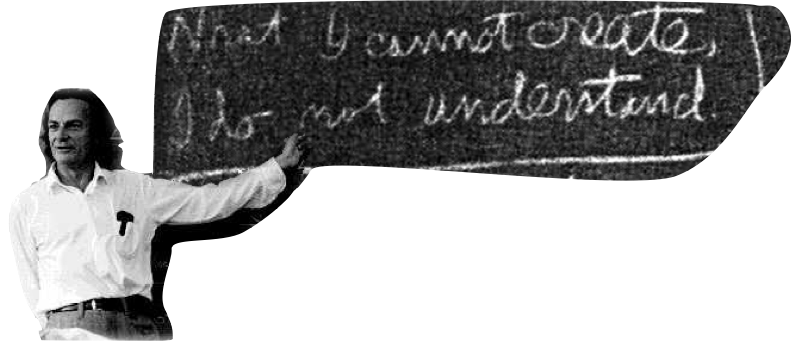 What I cannot create,
I do not understand.